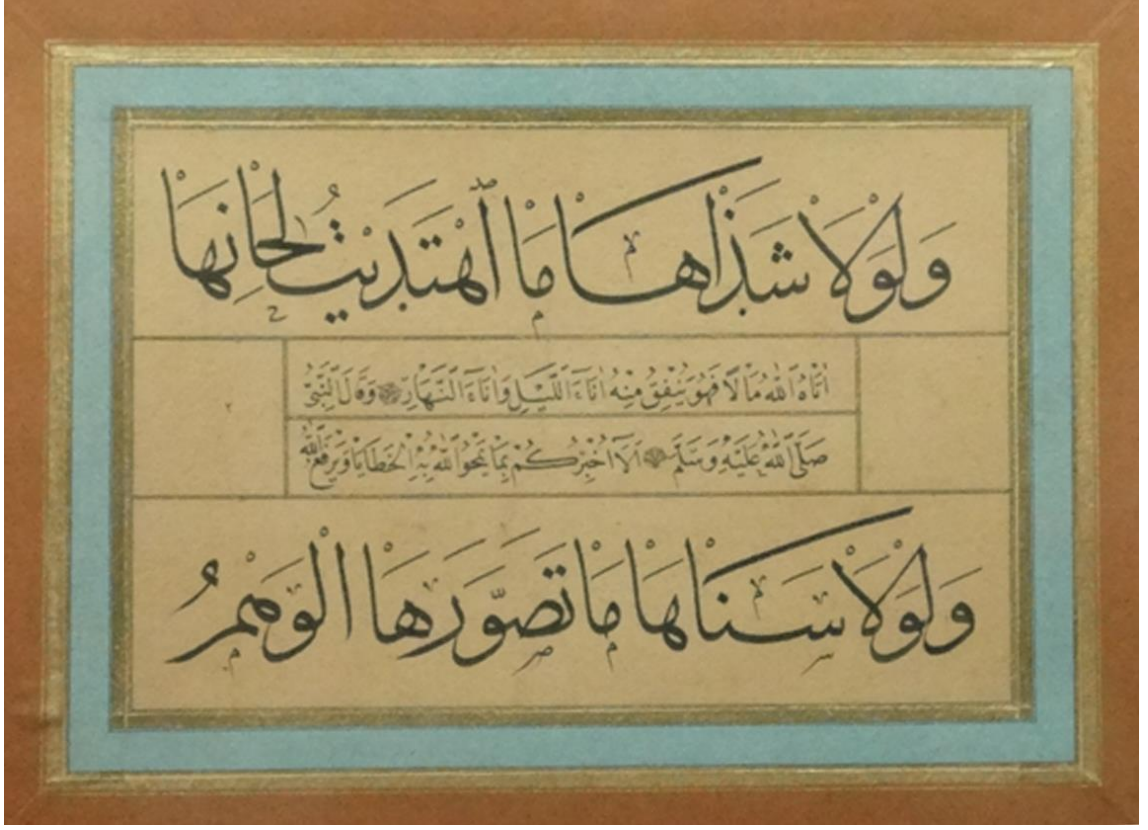 وَلَوْلَا شَذَاهَا مَا اهْتَدَيْتُ لِحَانِهَا
اٰتَاهُ اللّٰهُ مَالًا فَهُوَ يُنْفِقُ مِنْهُ اٰنَاءَ اللَّيْلِ وَاٰنَاءَ النَّهَارِ وَقَالَ النَّبِيُّ
صَلَّى اللّٰهُ عَلَيْهِ وَسَلَّمَ اَلَا اُخْبِرُكُمْ بِمَا يَمْحُو اللّٰهُ بِهِ الْخَطَايَا وَيَرْفَعُ اللّٰهُ
وَلَوْلَا سَنَاهَا مَا تَصَوَّرَهَا الْوَهْمُ